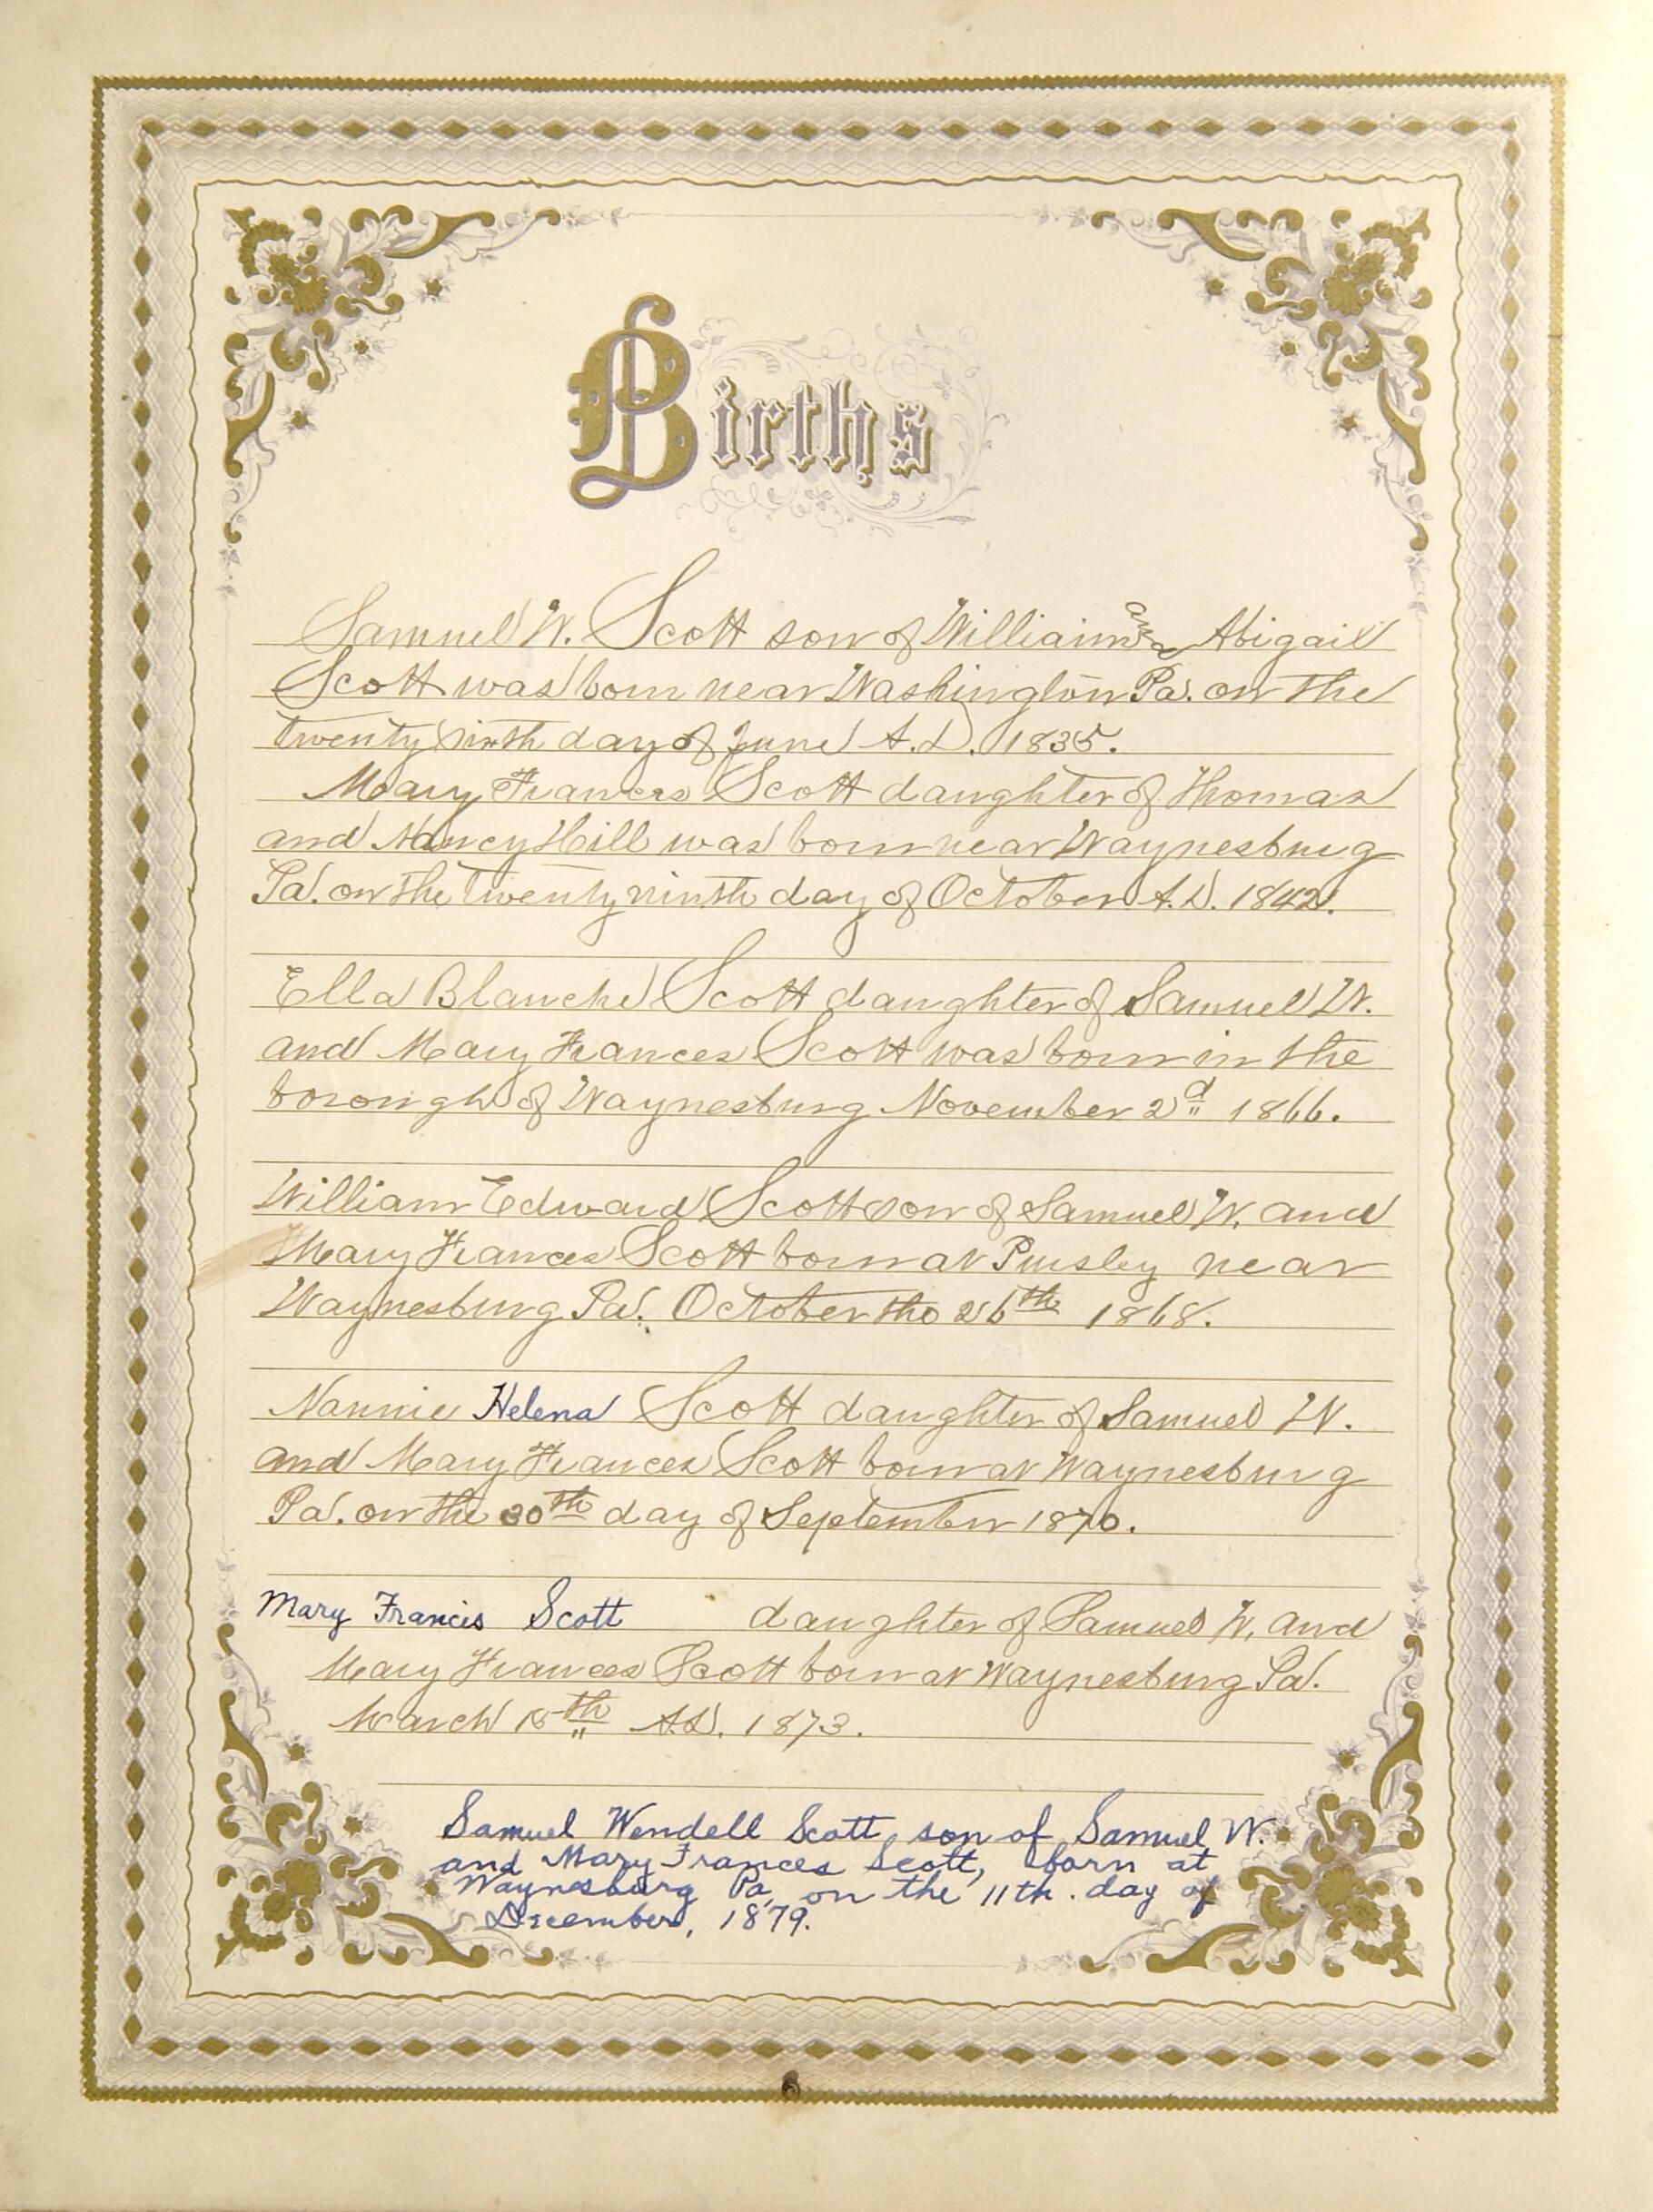 Births
Samuel W. Scott son of William and Abigail
Scott was born near Washington Pa. on the
twenty ninth day of June A.D. 1835.
Mary Frances Scott daughter of Thomas
and Nancy Hill was born near Waynesburg
Pa. on the twenty ninth day of October A.D. 1842.
Ella Blanche Scott daughter of Samuel W.
and Mary Frances Scott was born in the
borough of Waynesburg November 2d 1866.
William Edward Scott son of Samuel W. and
Mary Frances Scott born at Pursley near
Waynesburg Pa. October the 26th 1868.
Nannie Helena Scott daughter of Samuel W.
and Mary Frances Scott born at Waynesburg
Pa. on the 30th day of September 1870.
Mary Francis Scott daughter of Samuel W. and
Mary Frances Scott born at Waynesburg Pa.
March 15th A.D. 1873.
Samuel Wendell Scott, son of Samuel W.
and Mary Frances Scott, born at
Waynesburg Pa, on the 11th. day of
December, 1879.